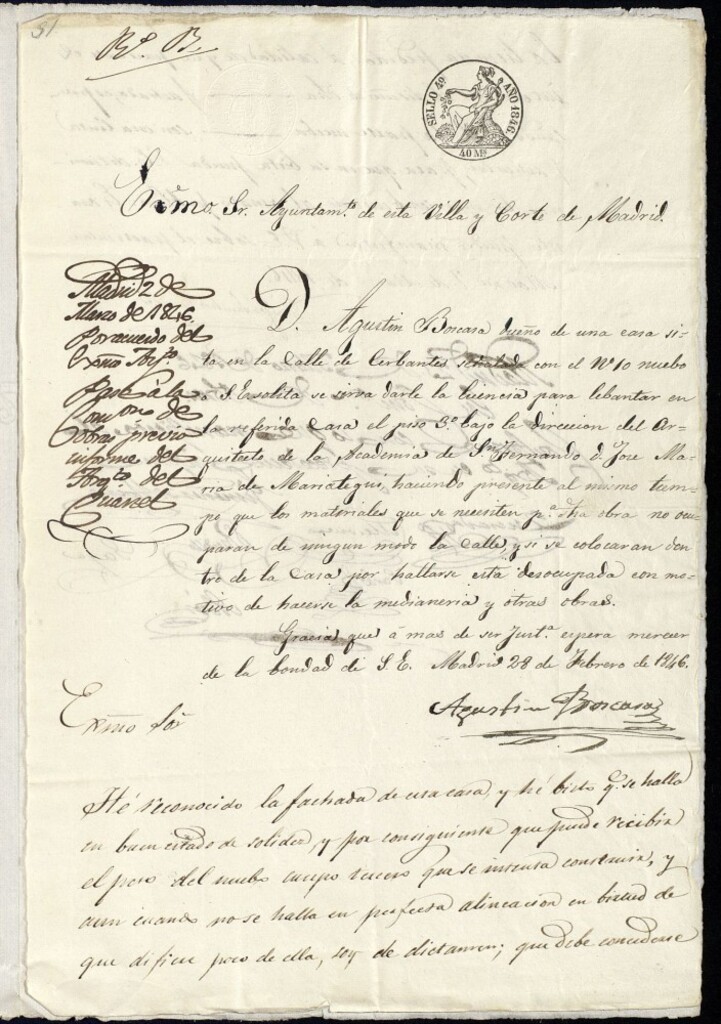 51
Rº. B.
SELLO 4º AÑO 1846.
40 Ms
Exmo. Sr. Ayuntamto. de esta Villa y Corte de Madrid.
Madrid 2 de
Marzo de 1846.
Por acuerdo del
Exmo Aytº
Pase á la
Comon de
Obras previo
informe del
Arqto del
Cuartel
D. Agustin Boscasa dueño de una casa si-
ta en la Calle de Cerbantes señalada con el Nº 10 nuebo
a S. E. solita se sirva darle la licencia para lebantar en
la referida Casa el piso 3º bajo la direccion del Ar-
quitecto de la Academia de Sn Fernando d. Jose Ma-
ria de Mariategui, haciendo presente al mismo tiem-
po que los materiales que se necesiten pª dha obra no ocu-
paran de ningun modo la Calle, y si se colocaran den-
tro de la Casa por hallarse esta desocupada con mo-
tivo de hacerse la medianeria y otras obras.
Gracia que á mas de ser Justª espera merecer
de la bondad de S. E. Madrid 28 de Febrero de 1846.
Agustin Boscasa
Exmo Sor
Hé reconocido la fachada de esta casa, y hé bisto q. se halla
en buen estado de solidez, y por consiguiente que puede recibir
el peso del nuebo cuerpo tercero que se intenta construir, y
aun cuando no se halla en perfecta alineacion en birtud de
que difiere poco de ella, soy de dictamen; que debe concederse